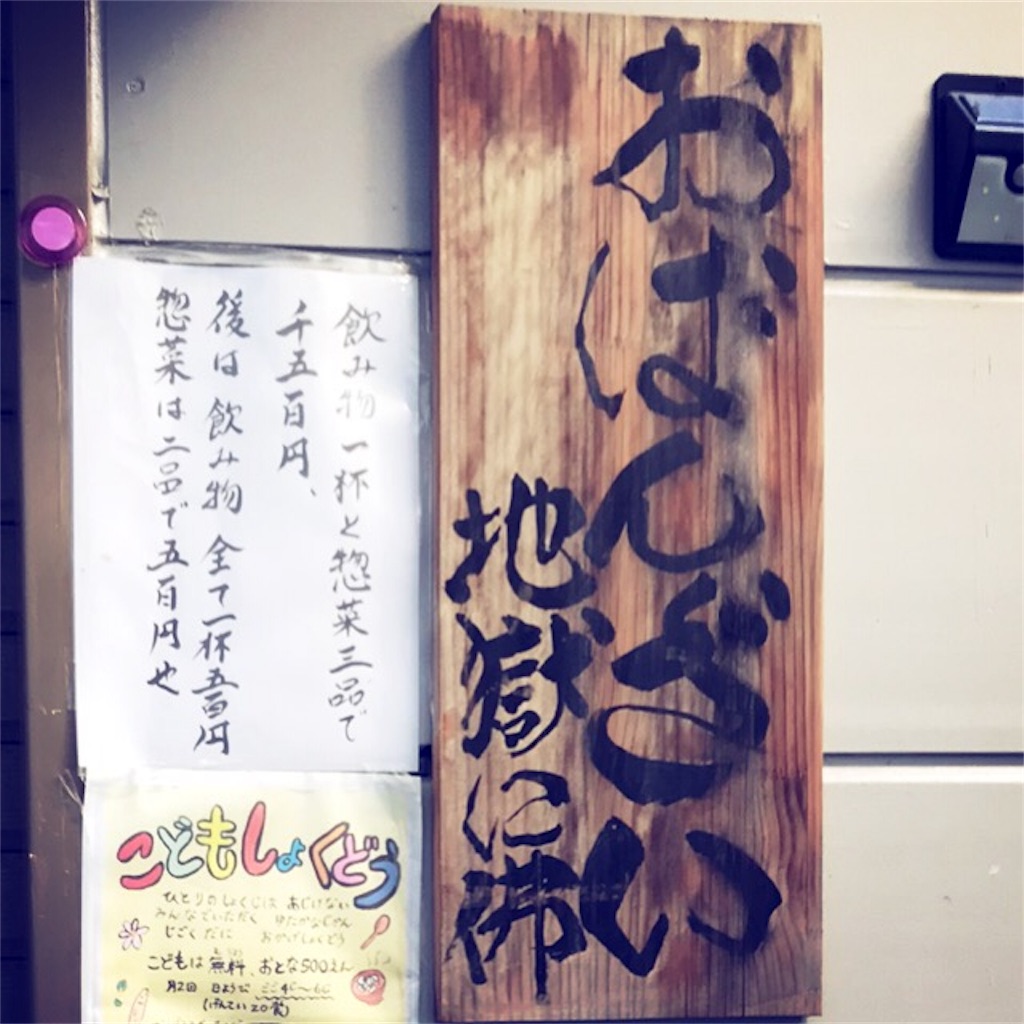 おばんざい
地獄に佛
飲み物一杯と惣菜三品で
千五百円、
後は飲み物全て一杯五百円
惣菜は二品で五百円也
こどもしょくどう
ひとりのしょくじは あじけない
みんなでいただく ゆたかなじかん
じごくだに おかげしょくどう
こどもは無料、おとな500えん
月2回 日ようび ごご4じ〜6じ
(げんてい20食)